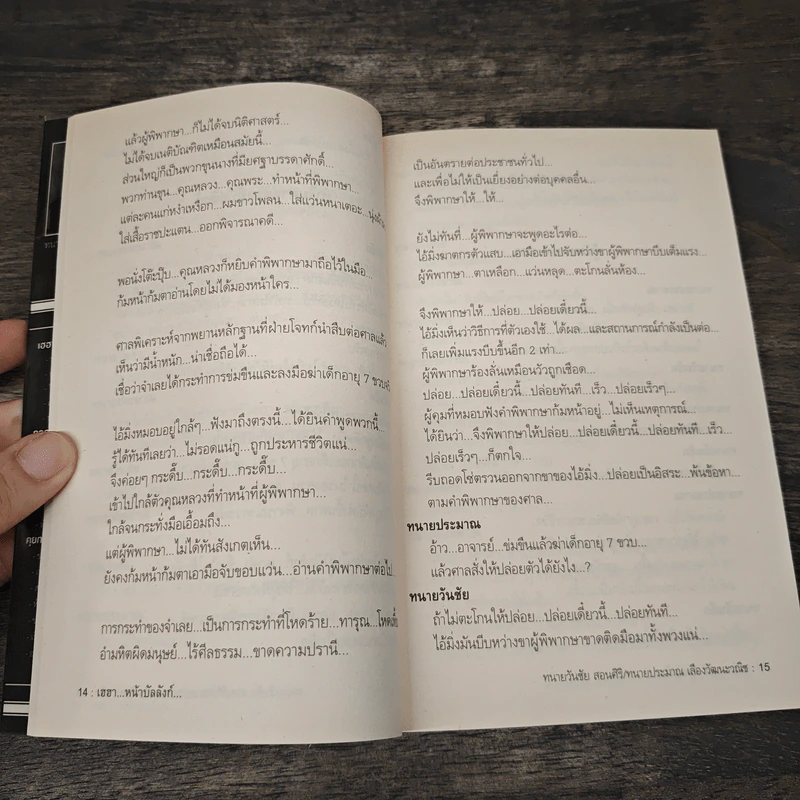 แล้วผู้พิพากษา...ก็ไม่ได้จบนิติศาสตร์...
ไม่ได้จบเนติบัณฑิตเหมือนสมัยนี้...
ส่วนใหญ่ก็เป็นพวกขุนนางที่มียศฐาบรรดาศักดิ์...
พวกท่านขุน...คุณหลวง...คุณพระ...ทำหน้าที่พิพากษา...
แต่ละคนแก่หงำเหงือก...ผมขาวโพลน...ใส่แว่นหนาเตอะ...
ใส่เสื้อราชปะแตน...ออกพิจารณาคดี...
พอนั่งโต๊ะปุ๊บ...คุณหลวงก็หยิบคำพิพากษามาถือไว้ในมือ...
ก้มหน้าก้มตาอ่านโดยไม่ได้มองหน้าใคร...
ศาลพิเคราะห์จากพยานหลักฐานที่ฝ่ายโจทก์นำสืบต่อศาลแล้ว
เห็นว่ามีน้ำหนัก...น่าเชื่อถือได้...
เชื่อว่าจำเลยได้กระทำการข่มขืนและลงมือฆ่าเด็กอายุ 7 ขวบ
ไอ้มิ่งหมอบอยู่ใกล้ๆ...ฟังมาถึงตรงนี้...ได้ยินคำพูดพวกนี้...
รู้ได้ทันทีเลยว่า...ไม่รอดแน่กู...ถูกประหารชีวิตแน่...
จึงค่อยๆ กระดื๊บ...กระดื๊บ...กระดื๊บ...
เข้าไปใกล้ตัวคุณหลวงที่ทำหน้าที่ผู้พิพากษา...
ใกล้จนกระทั่งมือเอื้อมถึง...
แต่ผู้พิพากษา...ไม่ได้ทันสังเกตเห็น...
ยังคงก้มหน้าก้มตาเอามือจับขอบแว่น...อ่านคำพิพากษาต่อไป...
การกระทำของจำเลย...เป็นการกระทำที่โหดร้าย...ทารุณ...โหดเหี้ยม
อำมหิตผิดมนุษย์...ไร้ศีลธรรม...ขาดความปรานี...
14 : เฮฮา...หน้าบัลลังก์...
เป็นอันตรายต่อประชาชนทั่วไป...
และเพื่อไม่ให้เป็นเยี่ยงอย่างต่อบุคคลอื่น...
จึงพิพากษาให้...ให้...
ยังไม่ทันที่...ผู้พิพากษาจะพูดอะไรต่อ...
ไอ้มิ่งฆาตกรตัวแสบ...เอามือเข้าไปจับหว่างขาผู้พิพากษาบีบเต็มแรง...
ผู้พิพากษา...ตาเหลือก...แว่นหลุด...ตะโกนลั่นห้อง...
จึงพิพากษาให้...ปล่อย...ปล่อยเดี๋ยวนี้...
ไอ้มิ่งเห็นว่าวิธีการที่ตัวเองใช้...ได้ผล...และสถานการณ์กำลังเป็นต่อ...
ก็เลยเพิ่มแรงบีบขึ้นอีก 2 เท่า...
ผู้พิพากษาร้องลั่นเหมือนวัวถูกเชือด...
ปล่อย...ปล่อยเดี๋ยวนี้...ปล่อยทันที...เร็ว...ปล่อยเร็วๆ...
ผู้คุมที่หมอบฟังคำพิพากษาก้มหน้าอยู่...ไม่เห็นเหตุการณ์...
ได้ยินว่า...จึงพิพากษาให้ปล่อย...ปล่อยเดี๋ยวนี้...ปล่อยทันที...เร็ว...
ปล่อยเร็วๆ...ก็ตกใจ...
รีบถอดโซ่ตรวนออกจากขาของไอ้มิ่ง...ปล่อยเป็นอิสระ...พ้นข้อหา...
ตามคำพิพากษาของศาล...
ทนายประมาณ
อ้าว...อาจารย์...ข่มขืนแล้วฆ่าเด็กอายุ 7 ขวบ...
แล้วศาลสั่งให้ปล่อยตัวได้ยังไง...?
ทนายวันชัย
ถ้าไม่ตะโกนให้ปล่อย...ปล่อยเดี๋ยวนี้...ปล่อยทันที...
ไอ้มิ่งมันบีบหว่างขาผู้พิพากษาขาดติดมือมาทั้งพวงแน่...
ทนายวันชัย สอนศิริ/ทนายประมาณ เลืองวัฒนะวณิช : 15